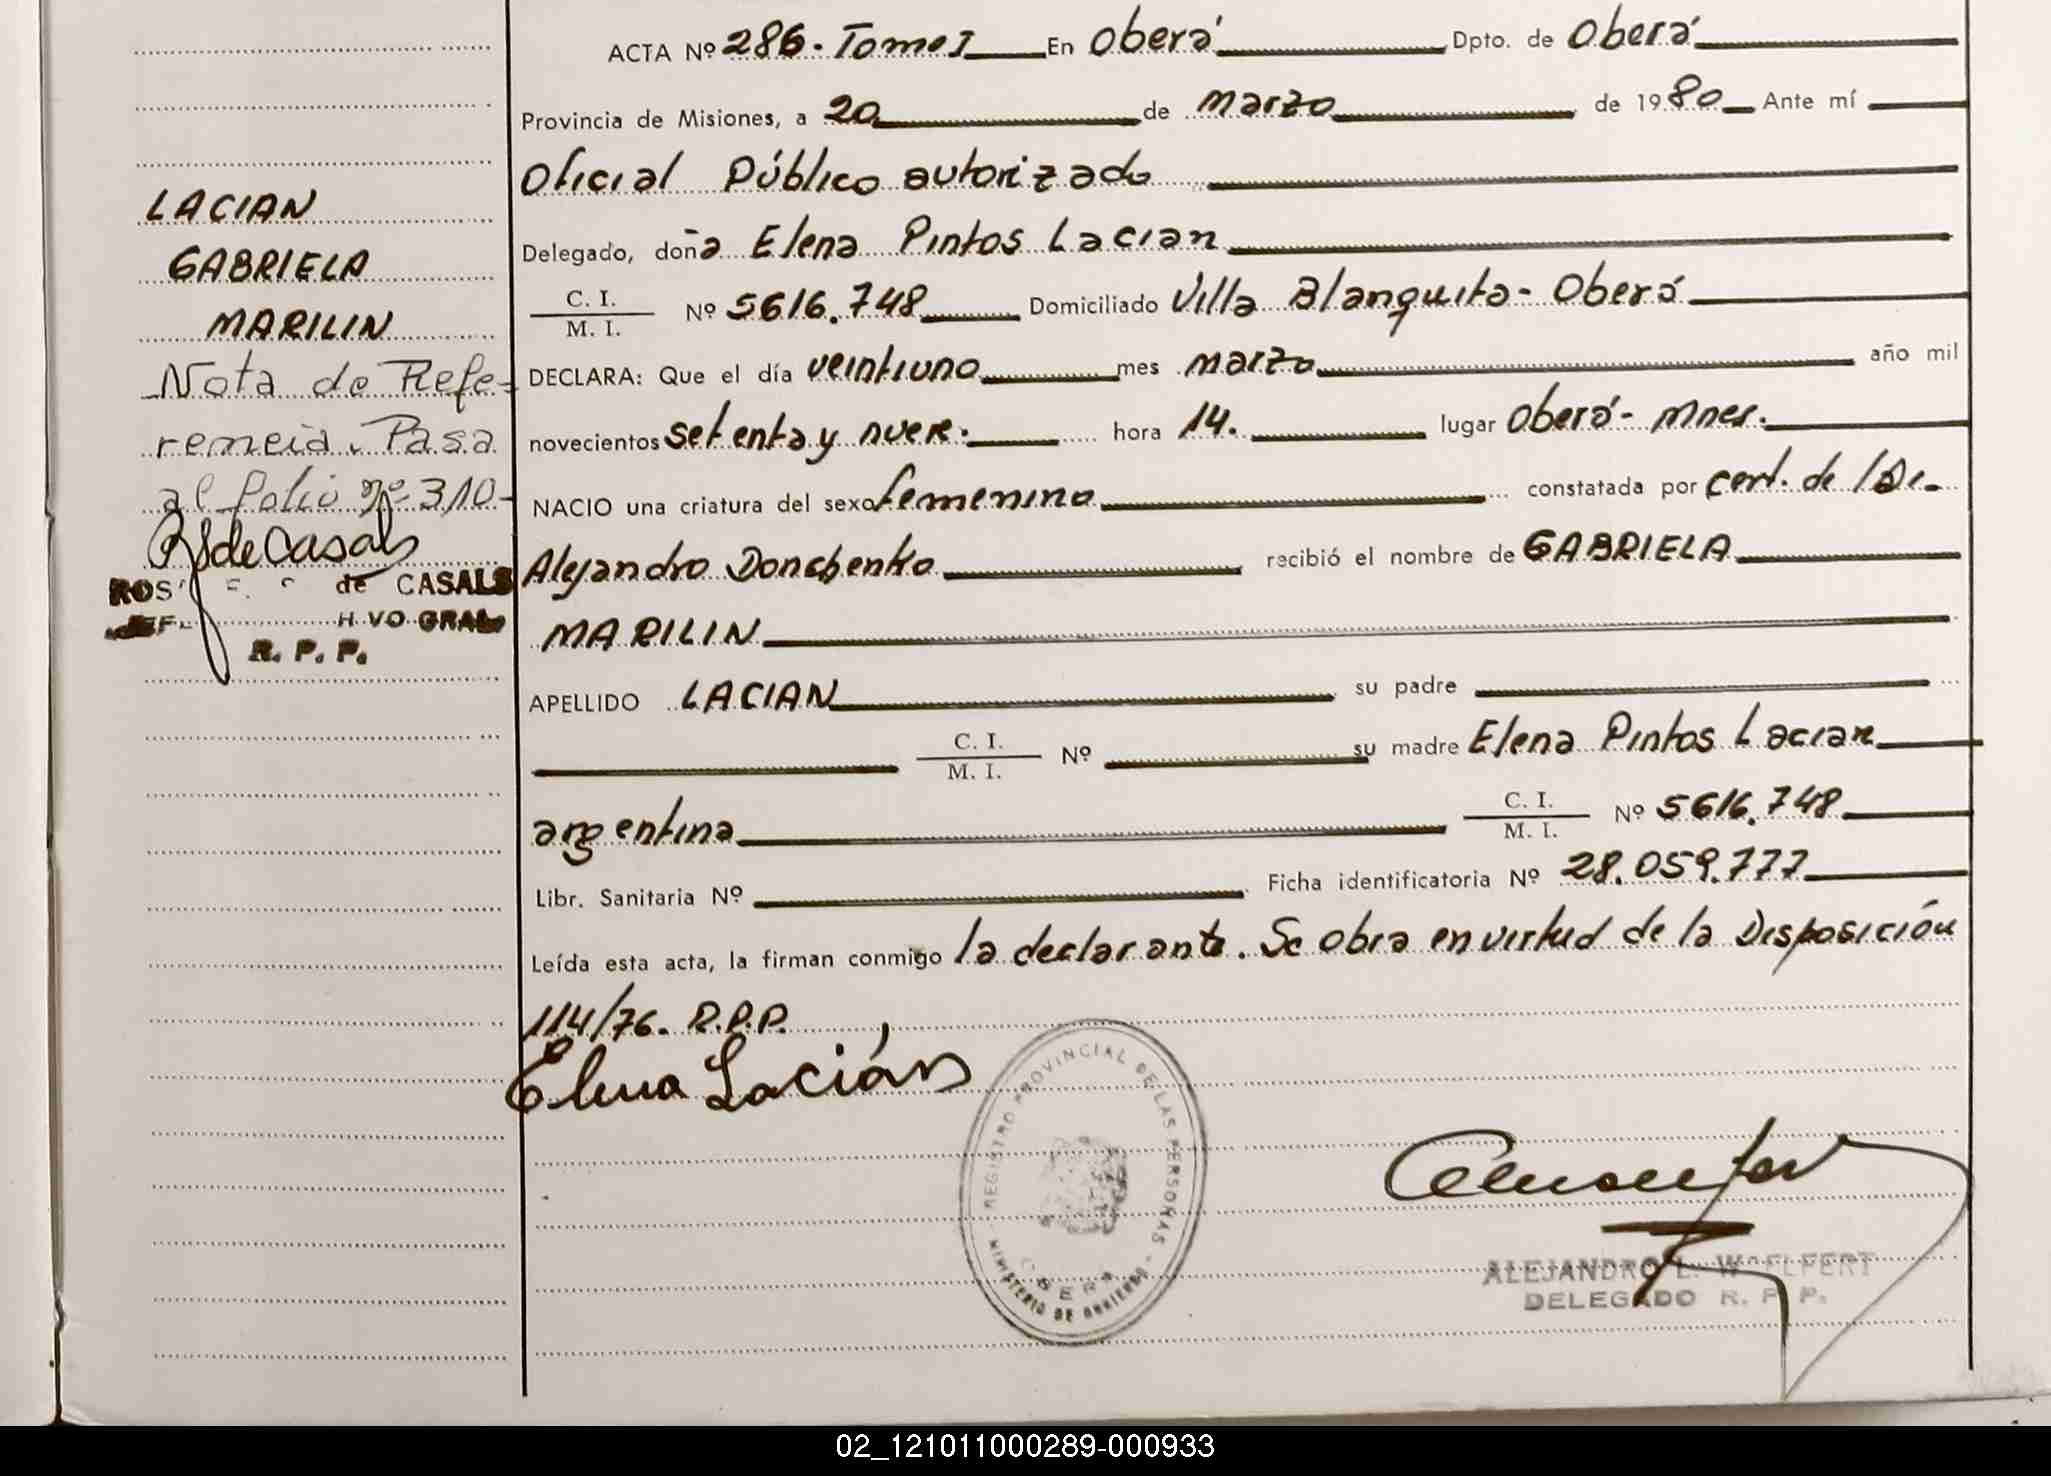 ACTA Nº 286. Tomo I En Oberá Dpto. de Oberá
Provincia de Misiones, a 20 de marzo de 1980 Ante mí
Oficial Público autorizado
Delegado, doña Elena Pintos Lacian
C. I.
M. I. Nº 5616.748 Domiciliado Villa Blanquita - Oberá
DECLARA: Que el día veintiuno mes marzo año mil
novecientos setenta y nueve. hora 14. lugar Oberá - Mnes.
NACIO una criatura del sexo femenino constatada por cert. de l Dr.
Alejandro Donchenko recibió el nombre de GABRIELA
MARILIN
APELLIDO LACIAN su padre
C. I.
M. I. Nº su madre Elena Pintos Lacian
argentina C. I.
M. I. Nº 5616.748
Libr. Sanitaria Nº Ficha identificatoria Nº 28.059.777
Leída esta acta, la firman conmigo la declarante. Se obra en virtud de la Disposición
114/76. R.P.P.
Elena Lacián
LACIAN
GABRIELA
MARILIN
Nota de Refe-
rencia. Pasa
al folio nº 310-
de Casals
de CASALS
GRAL
R. P. P.
REGISTRO PROVINCIAL DE LAS PERSONAS -
MINISTERIO DE GOBIERNO -
OBERA
ALEJANDRO L. WOELFERT
DELEGADO R. P. P.
02_121011000289-000933